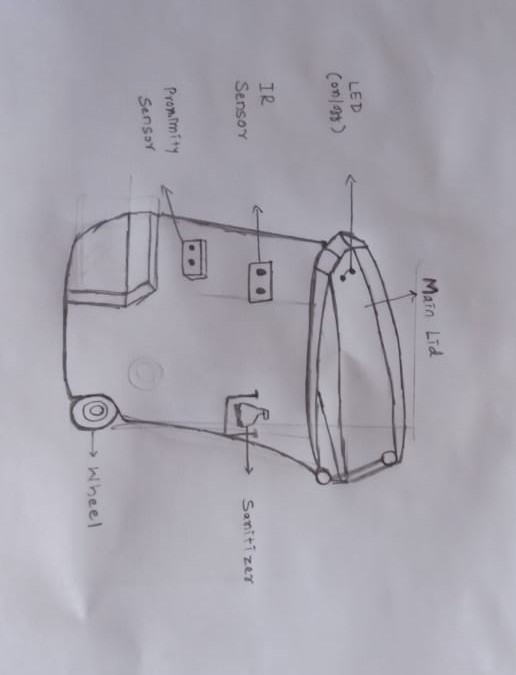 Main Lid
LED
(on/off)
IR
Sensor
Sanitizer
Proximity
Sensor
Wheel